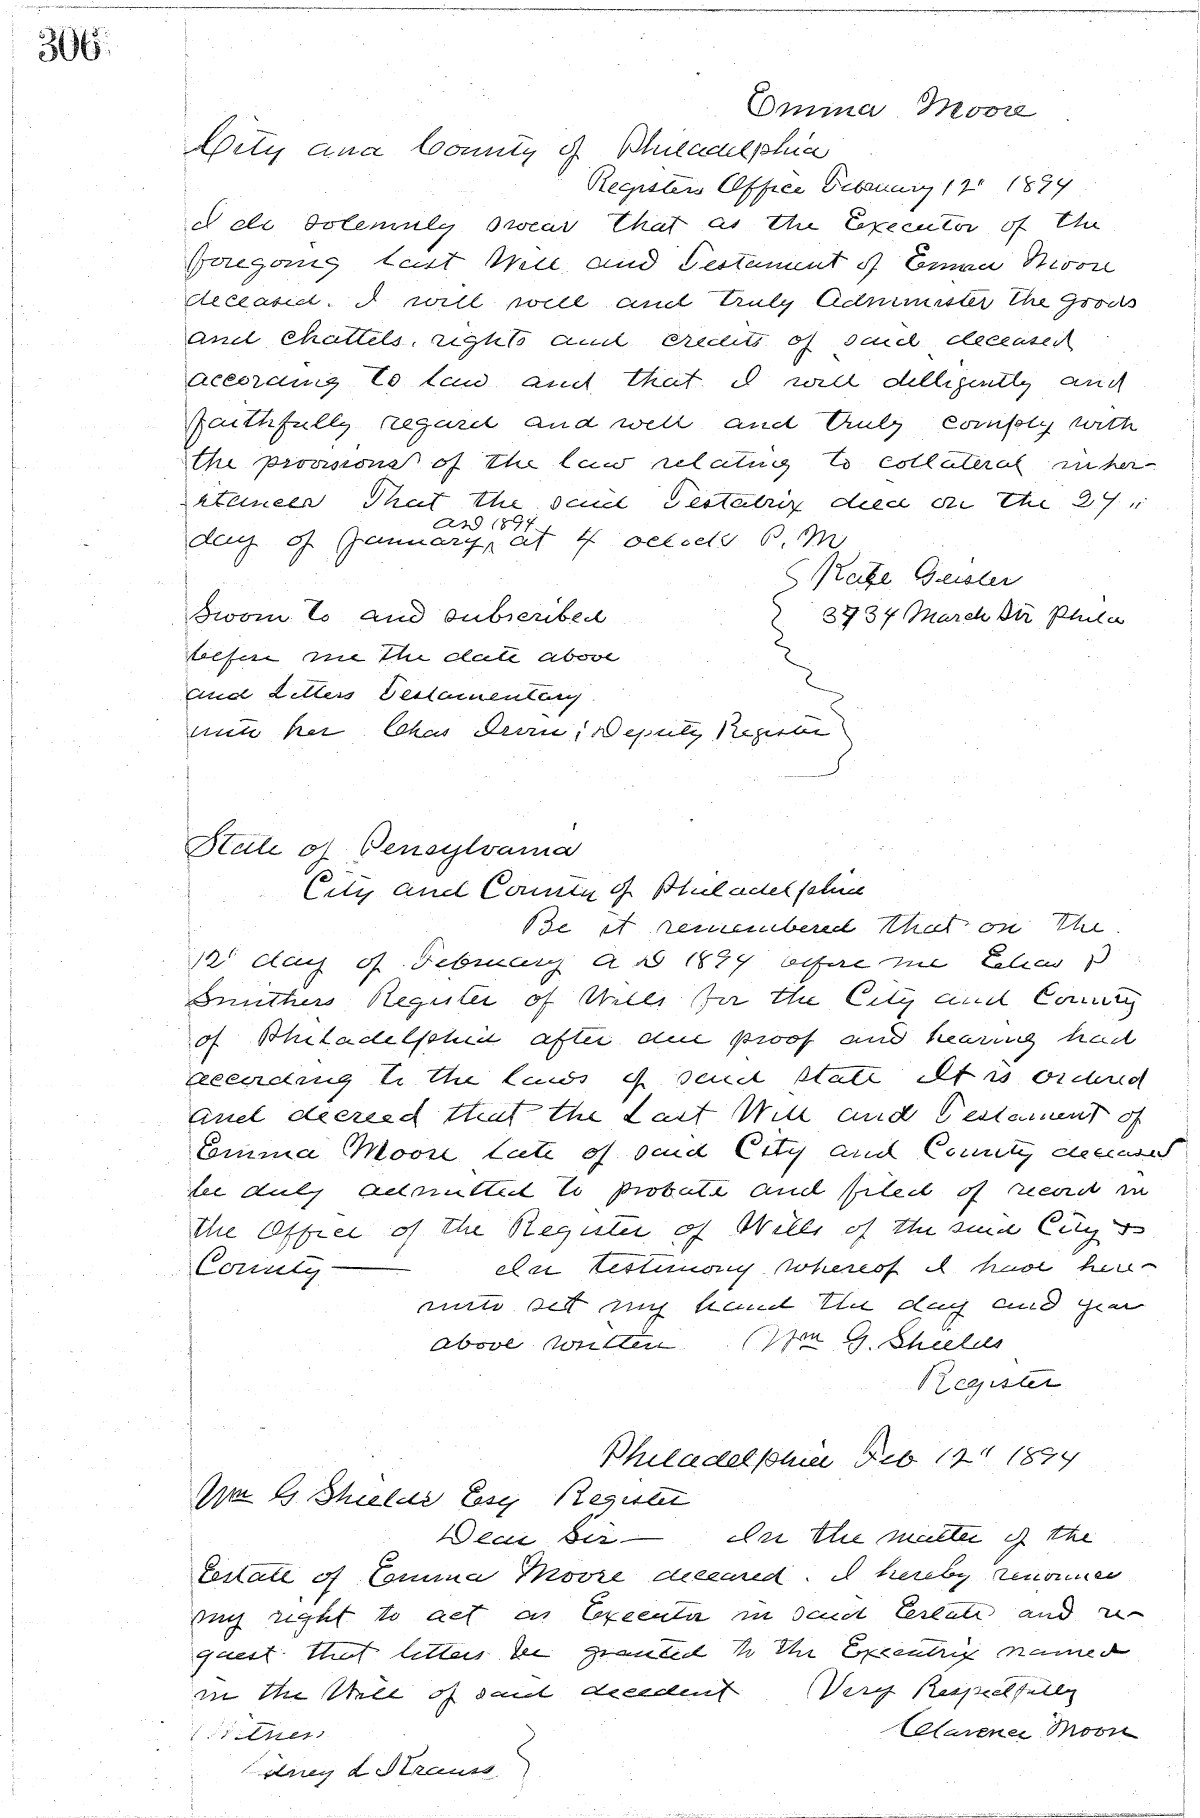 306
Emma Moore
City and County of Philadelphia
Registers Office February 12" 1894
I do solemnly swear that as the Executor of the
foregoing last Will and Testament of Emma Moore
deceased. I will well and truly Administer the goods
and chattels, rights and credits of said deceased
according to law and that I will dilligently and
faithfully regard and well and truly comply with
the provisions of the law relating to collateral inher-
itances That the said Testatrix died on the 24"
day of January AD 1894 at 4 oclock P. M
Kate Geisler
3734 March Str Phila
Sworn to and subscribed
before me the date above
and Letters Testamentary
unto her Chas Irvin, Deputy Register
State of Pensylvania
City and County of Philadelphia
Be it remembered that on the
12" day of February A D 1894 before me Elias P
Smithers Register of Wills for the City and County
of Philadelphia after due proof and hearing had
according to the laws of said state It is ordered
and decreed that the Last Will and Testament of
Emma Moore late of said City and County deceased
be duly admitted to probate and filed of record in
the Office of the Register of Wills of the said City &
County — In testimony whereof I have here-
unto set my hand the day and year
above written Wm G. Shields
Register
Philadelphia Feb 12" 1894
Wm G Shields Esq Register
Dear Sir — In the matter of the
Estate of Emma Moore deceased. I hereby renounce
my right to act as Executor in said Estate and re-
quest that letters be granted to the Executrix named
in the Will of said decedent Very Respectfully
Clarence Moore
Witness
Sidney L Krauss